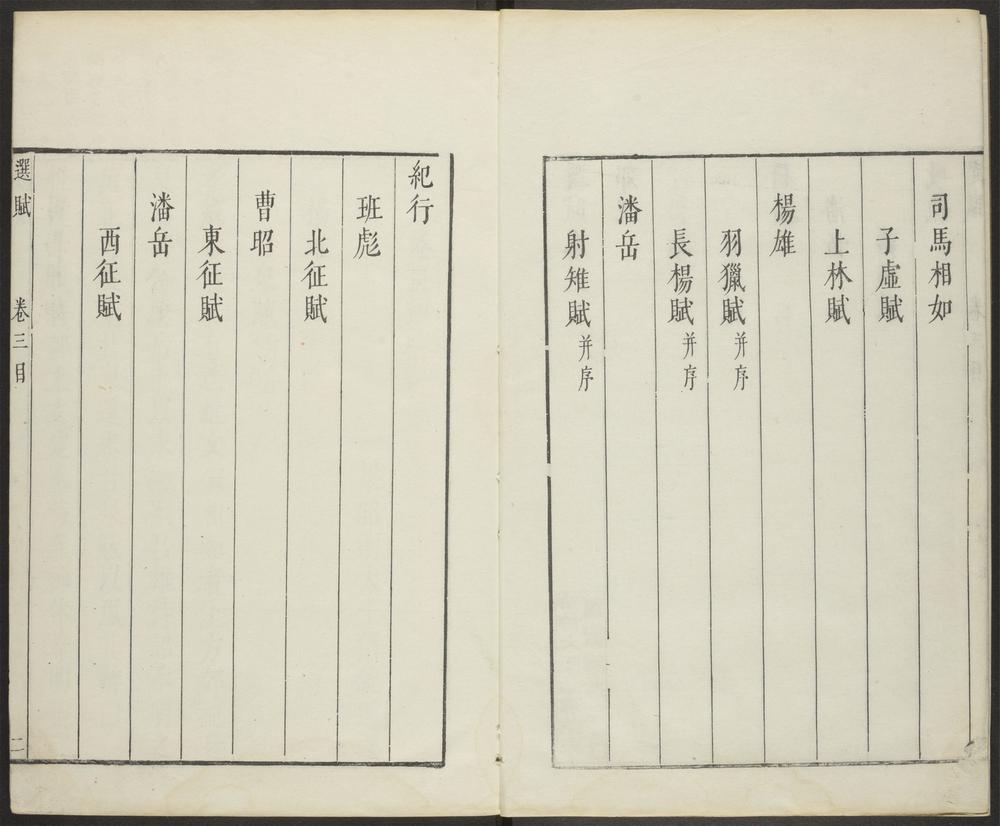 司馬相如
子虛賦
上林賦
楊雄
羽獵賦并序
長楊賦并序
潘岳
射雉賦并序
紀行
班彪
北征賦
曹昭
東征賦
潘岳
西征賦
選賦 卷三目 二